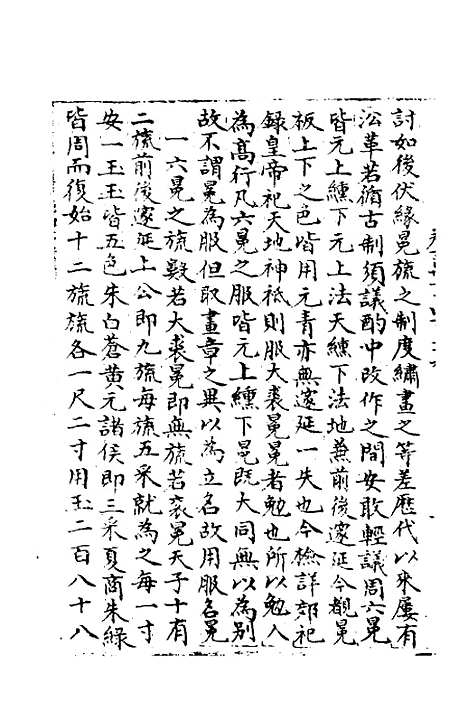 討如後伏緣冕旒之制度繡畫之等差歷代以來屢有
沿革若循古制須議酌中改作之間安敢輕議周六冕
皆元上纁下元上法天纁下法地兼前後邃延今觀冕
板上下之色皆用元青亦無邃延一失也今檢詳郊祀
録皇帝祀天地神祇則服大裘冕冕者勉也所以勉人
為高行凡六冕之服皆元上纁下冕既大同無以為別
故不謂冕為服但取畫章之異以為立名故用服名冕
一六冕之旒數若大裘冕即無旒若衮冕天子十有
二旒前後邃延上公即九旒每旒五采就為之每一寸
安一玉玉皆五色朱白蒼黄元諸侯即三采夏商朱綠
皆周而復始十二旒旒各一尺二寸用玉二百八十八